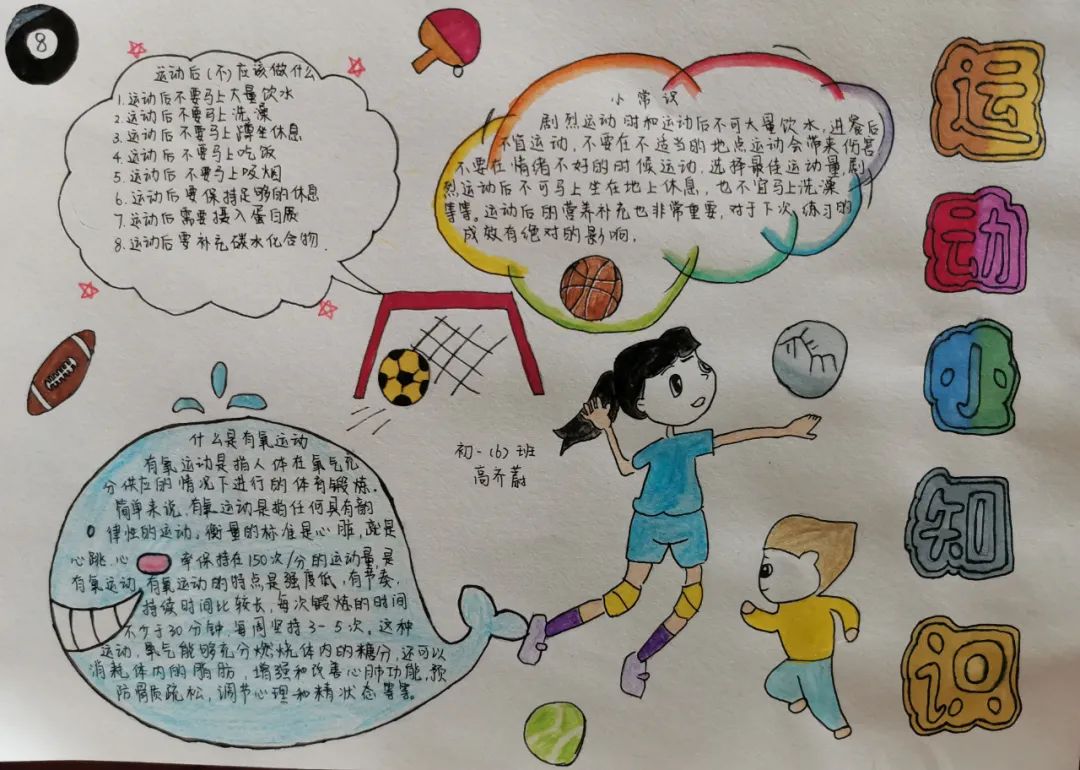 运动后(不)应该做什么
1.运动后不要马上大量饮水
2.运动后不要马上洗澡
3.运动后不要马上蹲坐休息
4.运动后不要马上吃饭
5.运动后不要马上吸烟
6.运动后要保持足够的休息
7.运动后需要摄入蛋白质
8.运动后要补充碳水化合物.
小常识
剧烈运动时和运动后不可大量饮水,进餐后
不宜运动,不要在不适当的地点运动会带来伤害
不要在情绪不好的时候运动,选择最佳运动量,剧
烈运动后不可马上坐在地上休息,也不宜马上洗澡
等等。运动后的营养补充也非常重要,对于下次练习的
成效有绝对的影响.
运
动
小
知
识
什么是有氧运动
有氧运动是指人体在氧气充
分供应的情况下进行的体育锻炼.
简单来说,有氧运动是指任何具有韵
律性的运动,衡量的标准是心脏,就是
心跳.心率保持在150次/分的运动量是
有氧运动,有氧运动的特点是强度低,有节奏,
持续时间比较长,每次锻炼的时间
不少于30分钟,每周坚持3-5次。这种
运动,氧气能够充分燃烧体内的糖分,还可以
消耗体内的脂肪,增强和改善心肺功能,预
防骨质疏松,调节心理和精状态等等。
初一(6)班
高乔蔚
8